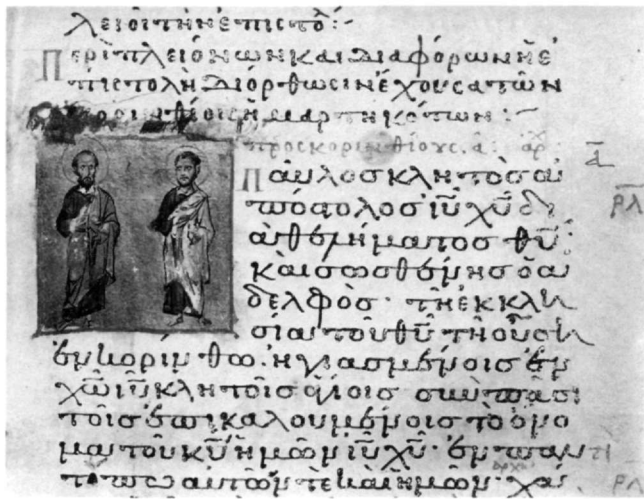 λειοῖ τὴν ἐπιστο:-
Περὶ πλειόνων καὶ διαφόρων ἡ ἐ
πιστολὴ διόρθωσιν ἔχουσα τῶν
κορινθίοις ἡμαρτηκότων:-
προς κορινθίους. α: αρχ
Παυλος κλητὸς ἀ
πόστολος ιυ̅ χυ̅ δι
ὰ θελήματος θυ̅
καὶ σωσθένης ὁ ἀ
δελφὸς· τῆ ἐκκλη
σία τοῦ θυ̅ τῆ οὔση
ἐν κορίνθω. ἡγιασμένοις ἐν
χω̅ ιυ̅ κλητοῖς ἁγίοις σὺν πᾶσι
τοῖς ἐπικαλουμένοις τὸ ὄνο
μα τοῦ κυ̅ ἡμῶν ιυ̅ χυ̅· ἐν παντὶ
τόπω αὐτῶν τε καὶ ἡμῶν· χά